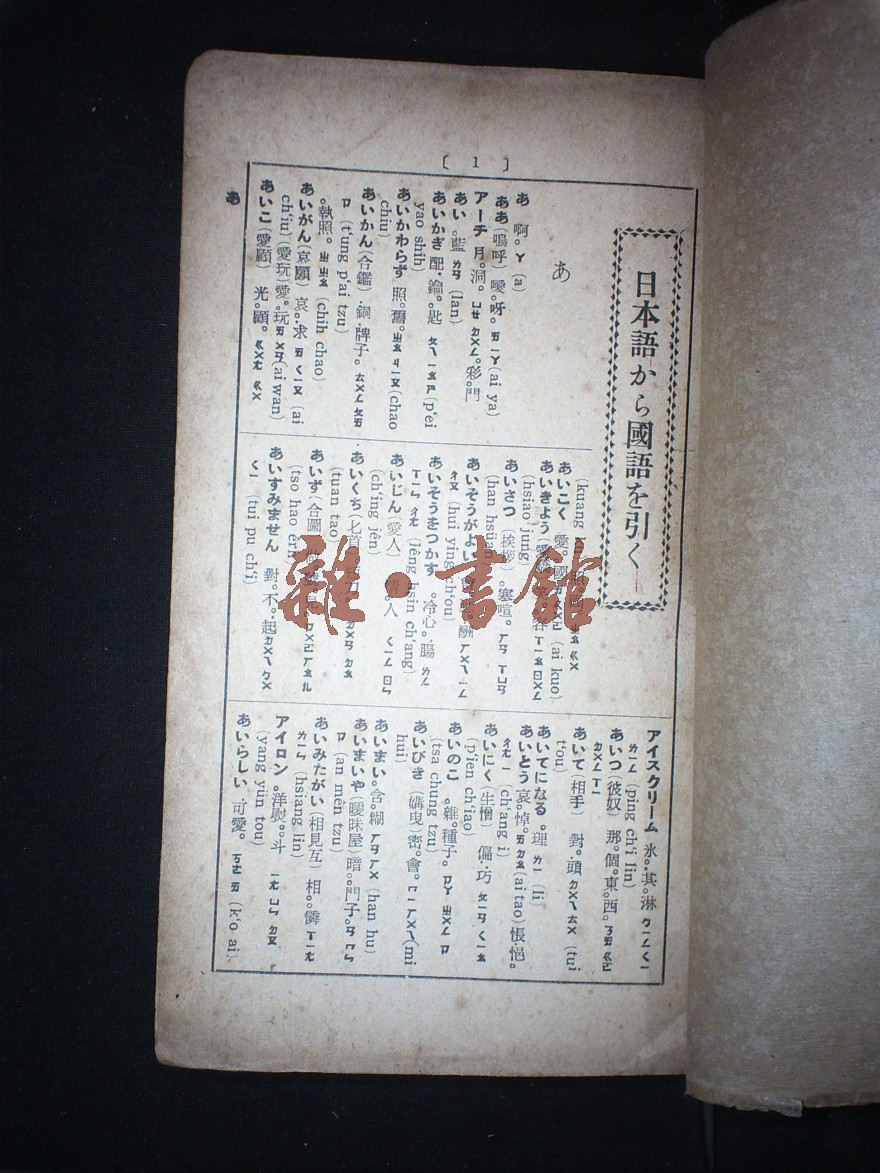 〔 1 〕
日本語から國語を引く
あ
あ 啊。ㄚ (a)
ああ(嗚呼) 噯。呀。ㄞ ㄧㄚ (ai ya)
アーチ 月。洞。ㄩㄝ ㄉㄨㄥ。彩。門
あい. 藍 ㄌㄢ (lan)
あいかぎ 配.鑰。匙 ㄆㄟ ㄧㄠ ㄕ (p'ei
yao shih)
あいかわらず 照。舊。ㄓㄠ ㄐㄧㄡ (chao
chiu)
あいかん(合鑑) .銅.牌子。ㄊㄨㄥ ㄆㄞ
ㄗ (t'ung p'ai tzu)
。執照。ㄓ ㄓㄠ (chih chao)
あいがん(哀願) 哀。.求 ㄞ ㄑㄧㄡ (ai
ch'iu) (愛玩)愛。.玩 ㄞ ㄨㄢ (ai wan)
あいこ (愛顧) 光。顧。ㄍㄨㄤ ㄍㄨ
あ
(kuang
ㄓㄠ ㄍㄨ
あいこく 愛。國 (ai kuo)
あいきよう
(hsiao jung)
あいさつ (挨拶) 。寒喧. ㄏㄢ ㄒㄩㄢ
(han hsüan)
あいそうがよい 酬 ㄏㄨㄟ
(hui ying ch'ou)
あいそうをつかす 。冷心.腸 ㄌㄥ
ㄒㄧㄣ ㄔㄤ (lêng hsin ch'ang)
あいじん(愛人) 人 ㄑㄧㄥ ㄖㄣ
(ch'ing jên)
あいくち(匕首) ㄉㄨㄢ ㄉㄠ
(tuan tao)
あいず(合圖) ㄗㄨㄛ ㄏㄠ ㄦ
(tso hao êrh)
あいすみません 對。不。.起 ㄉㄨㄟ ㄅㄨ
ㄑㄧ (tui pu ch'i)
アイスクリーム 氷。.其.淋 ㄅㄧㄥ ㄑㄧ
ㄌㄧㄣ (ping ch'i lin)
あいつ(彼奴) 那。個。東.西。ㄋㄞ ㄍㄜ
ㄉㄨㄥ ㄒㄧ
あいて(相手) 對.頭 ㄉㄨㄟ ㄊㄡ (tui
t'ou)
あいてになる 。理 ㄌㄧ (li)
あいとう 哀。悼。ㄞ ㄉㄠ (ai tao) 悵悒。
ㄔㄤ ㄧ ch'ang i)
あいにく(生憎) 偏.巧 ㄆㄧㄢ ㄑㄧㄠ
(p'ien ch'iao)
あいのこ 。雜。種子. ㄗㄚ ㄓㄨㄥ ㄗ
(tsa chung tzu)
あいびき (媾曳)密。會。ㄇㄧ ㄏㄨㄟ (mi
hui)
あいまい 。含。糊 ㄏㄢ ㄏㄨ (han hu)
あいまいや(曖昧屋)暗。。門子。ㄢ ㄇㄣ
ㄗ (an mên tzu)
あいみたがい(相見互) 相。。憐 ㄒㄧㄤ
ㄌㄧㄣ (hsiang lin)
アイロン 。洋熨。。斗 ㄧㄤ ㄩㄣ ㄉㄡ
(yang yün tou)
あいらしい .可愛。ㄎㄜ ㄞ (k'o ai)
雜·書館